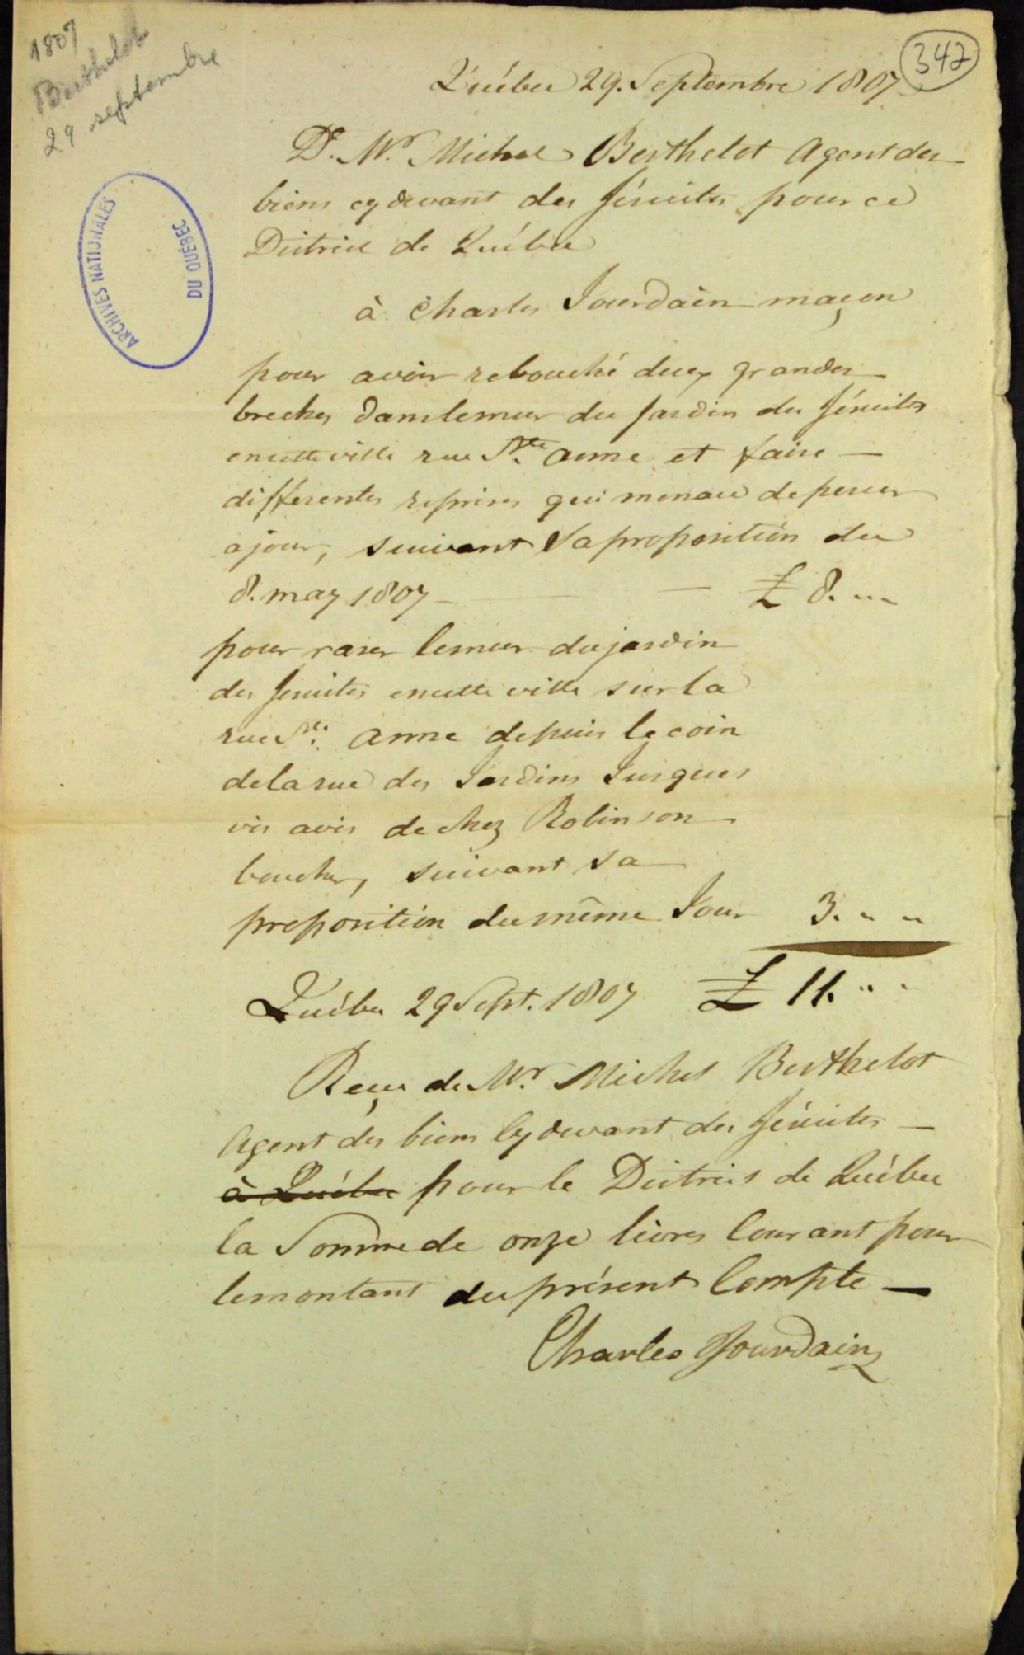 1807
Berthelot
29 septembre
342
ARCHIVES NATIONALES
DU QUÉBEC
Québec 29. Septembre 1807
Dr. Mr. Michel Berthelot Agent des
biens cydevant des Jésuites pour ce
District de Québec
à Charles Jourdain maçon
pour avoir rebouché deux grandes
breches dans le mur du Jardin des Jésuites
en cette ville rue Ste. anne et faire
differentes reprises qui menace de percer
a jour, suivant Sa proposition du
8. may 1807 £ 8. " "
pour raser le mur du jardin
des Jesuites en cette ville sur la
rue Ste. anne depuis le coin
de la rue des Jardins Jusques
vis avis de chez Robinson
boucher, suivant sa
proposition du même Jour 3. " "
Québec 29 Sept. 1807 £ 11. " "
Reçu de Mr. Michel Berthelot
Agent des biens Cydevant des Jésuites
à Québec pour le District de Québec
la Somme de onze livres Courant pour
le montant du présent Compte
Charles Jourdain